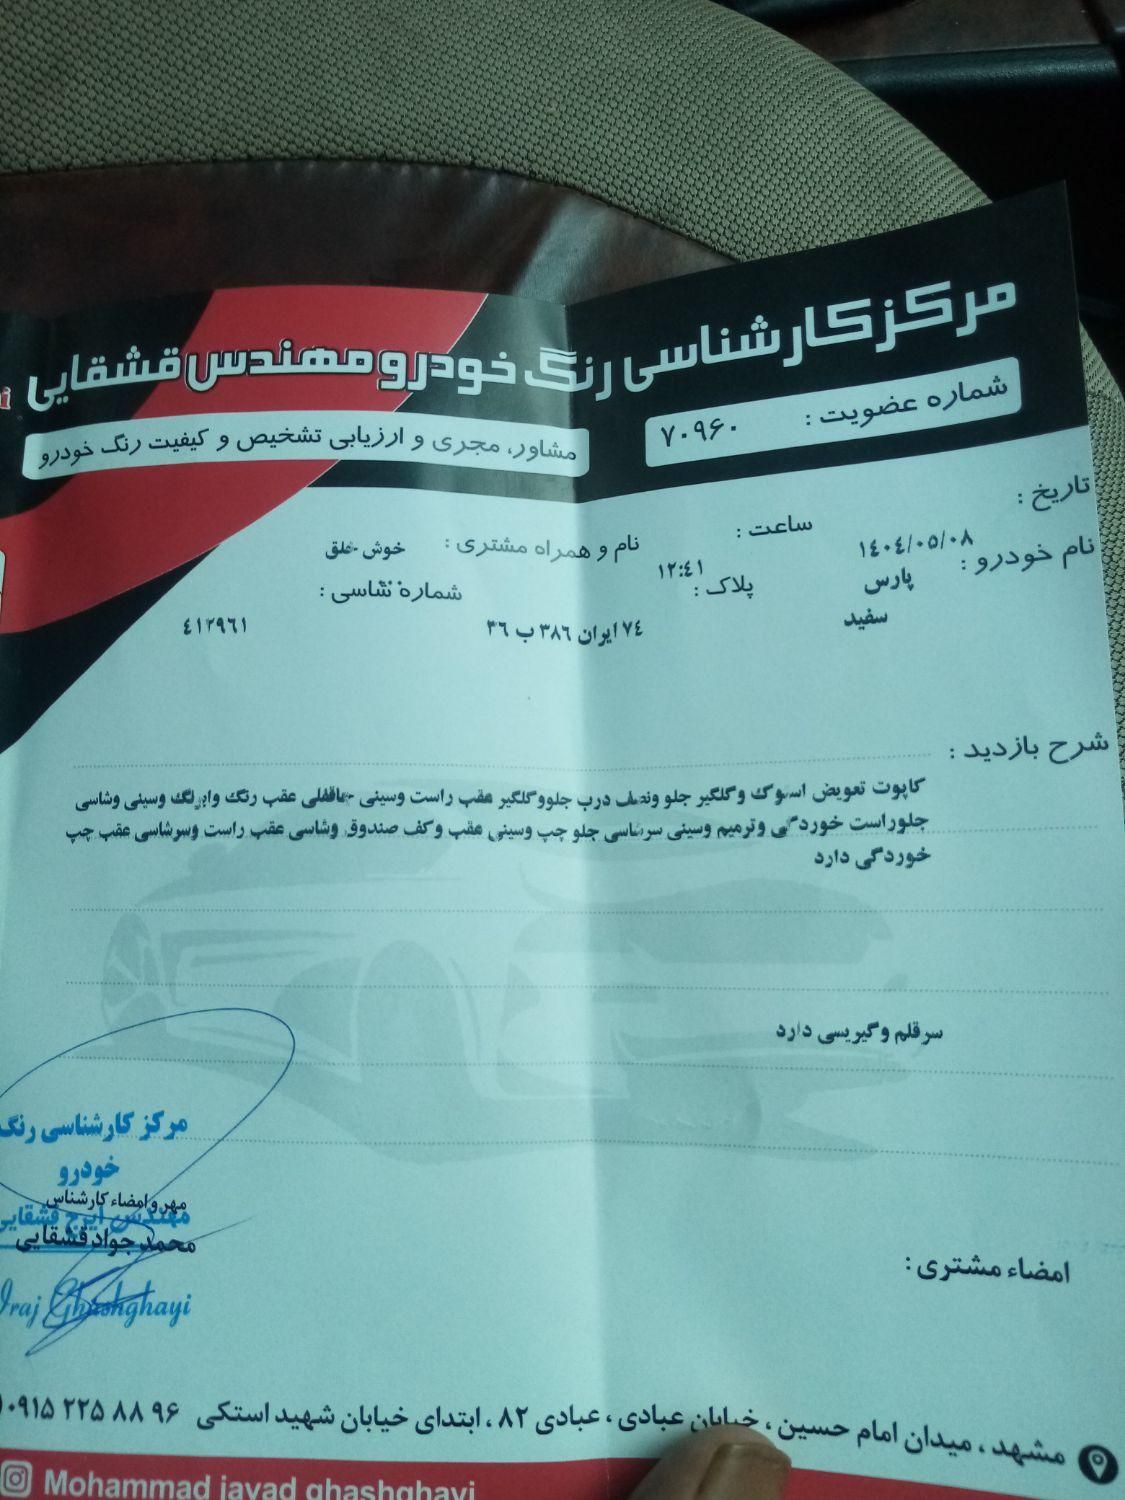 مرکز کارشناسی رنگ خودرو مهندس قشقایی
شماره عضویت : ۷۰۹۶۰
مشاور، مجری و ارزیابی تشخیص و کیفیت رنگ خودرو
تاریخ : ۱۴۰۴/۰۵/۰۸
ساعت : ۱۲:۴۱
نام و همراه مشتری : خوش خلق
نام خودرو : پارس
سفید
پلاک : ۷۴ ایران ۳۸۶ ب ۳۶
شماره شاسی : ٤١٢٩٦١
شرح بازدید :
کاپوت تعویض استوک وگلگیر جلو ونصف درب جلووگلگیر عقب راست وسینی عقب رنگ وسینی وشاسی
جلوراست خوردگی وترمیم وسینی سرشاسی جلو چپ وسینی عقب وکف صندوق وشاسی عقب راست وسرشاسی عقب چپ
خوردگی دارد
سرقلم وگیریسی دارد
مرکز کارشناسی رنگ
خودرو
مهر و امضاء کارشناس
مهندس ایرج قشقایی
محمد جواد قشقایی
Iraj Ghashghayi
امضاء مشتری :
مشهد ، میدان امام حسین ، خیابان عبادی ، عبادی ۸۲ ، ابتدای خیابان شهید استکی ۰۹۱۵ ۲۲۵ ۸۸ ۹۶
Mohammad javad ghashghayi